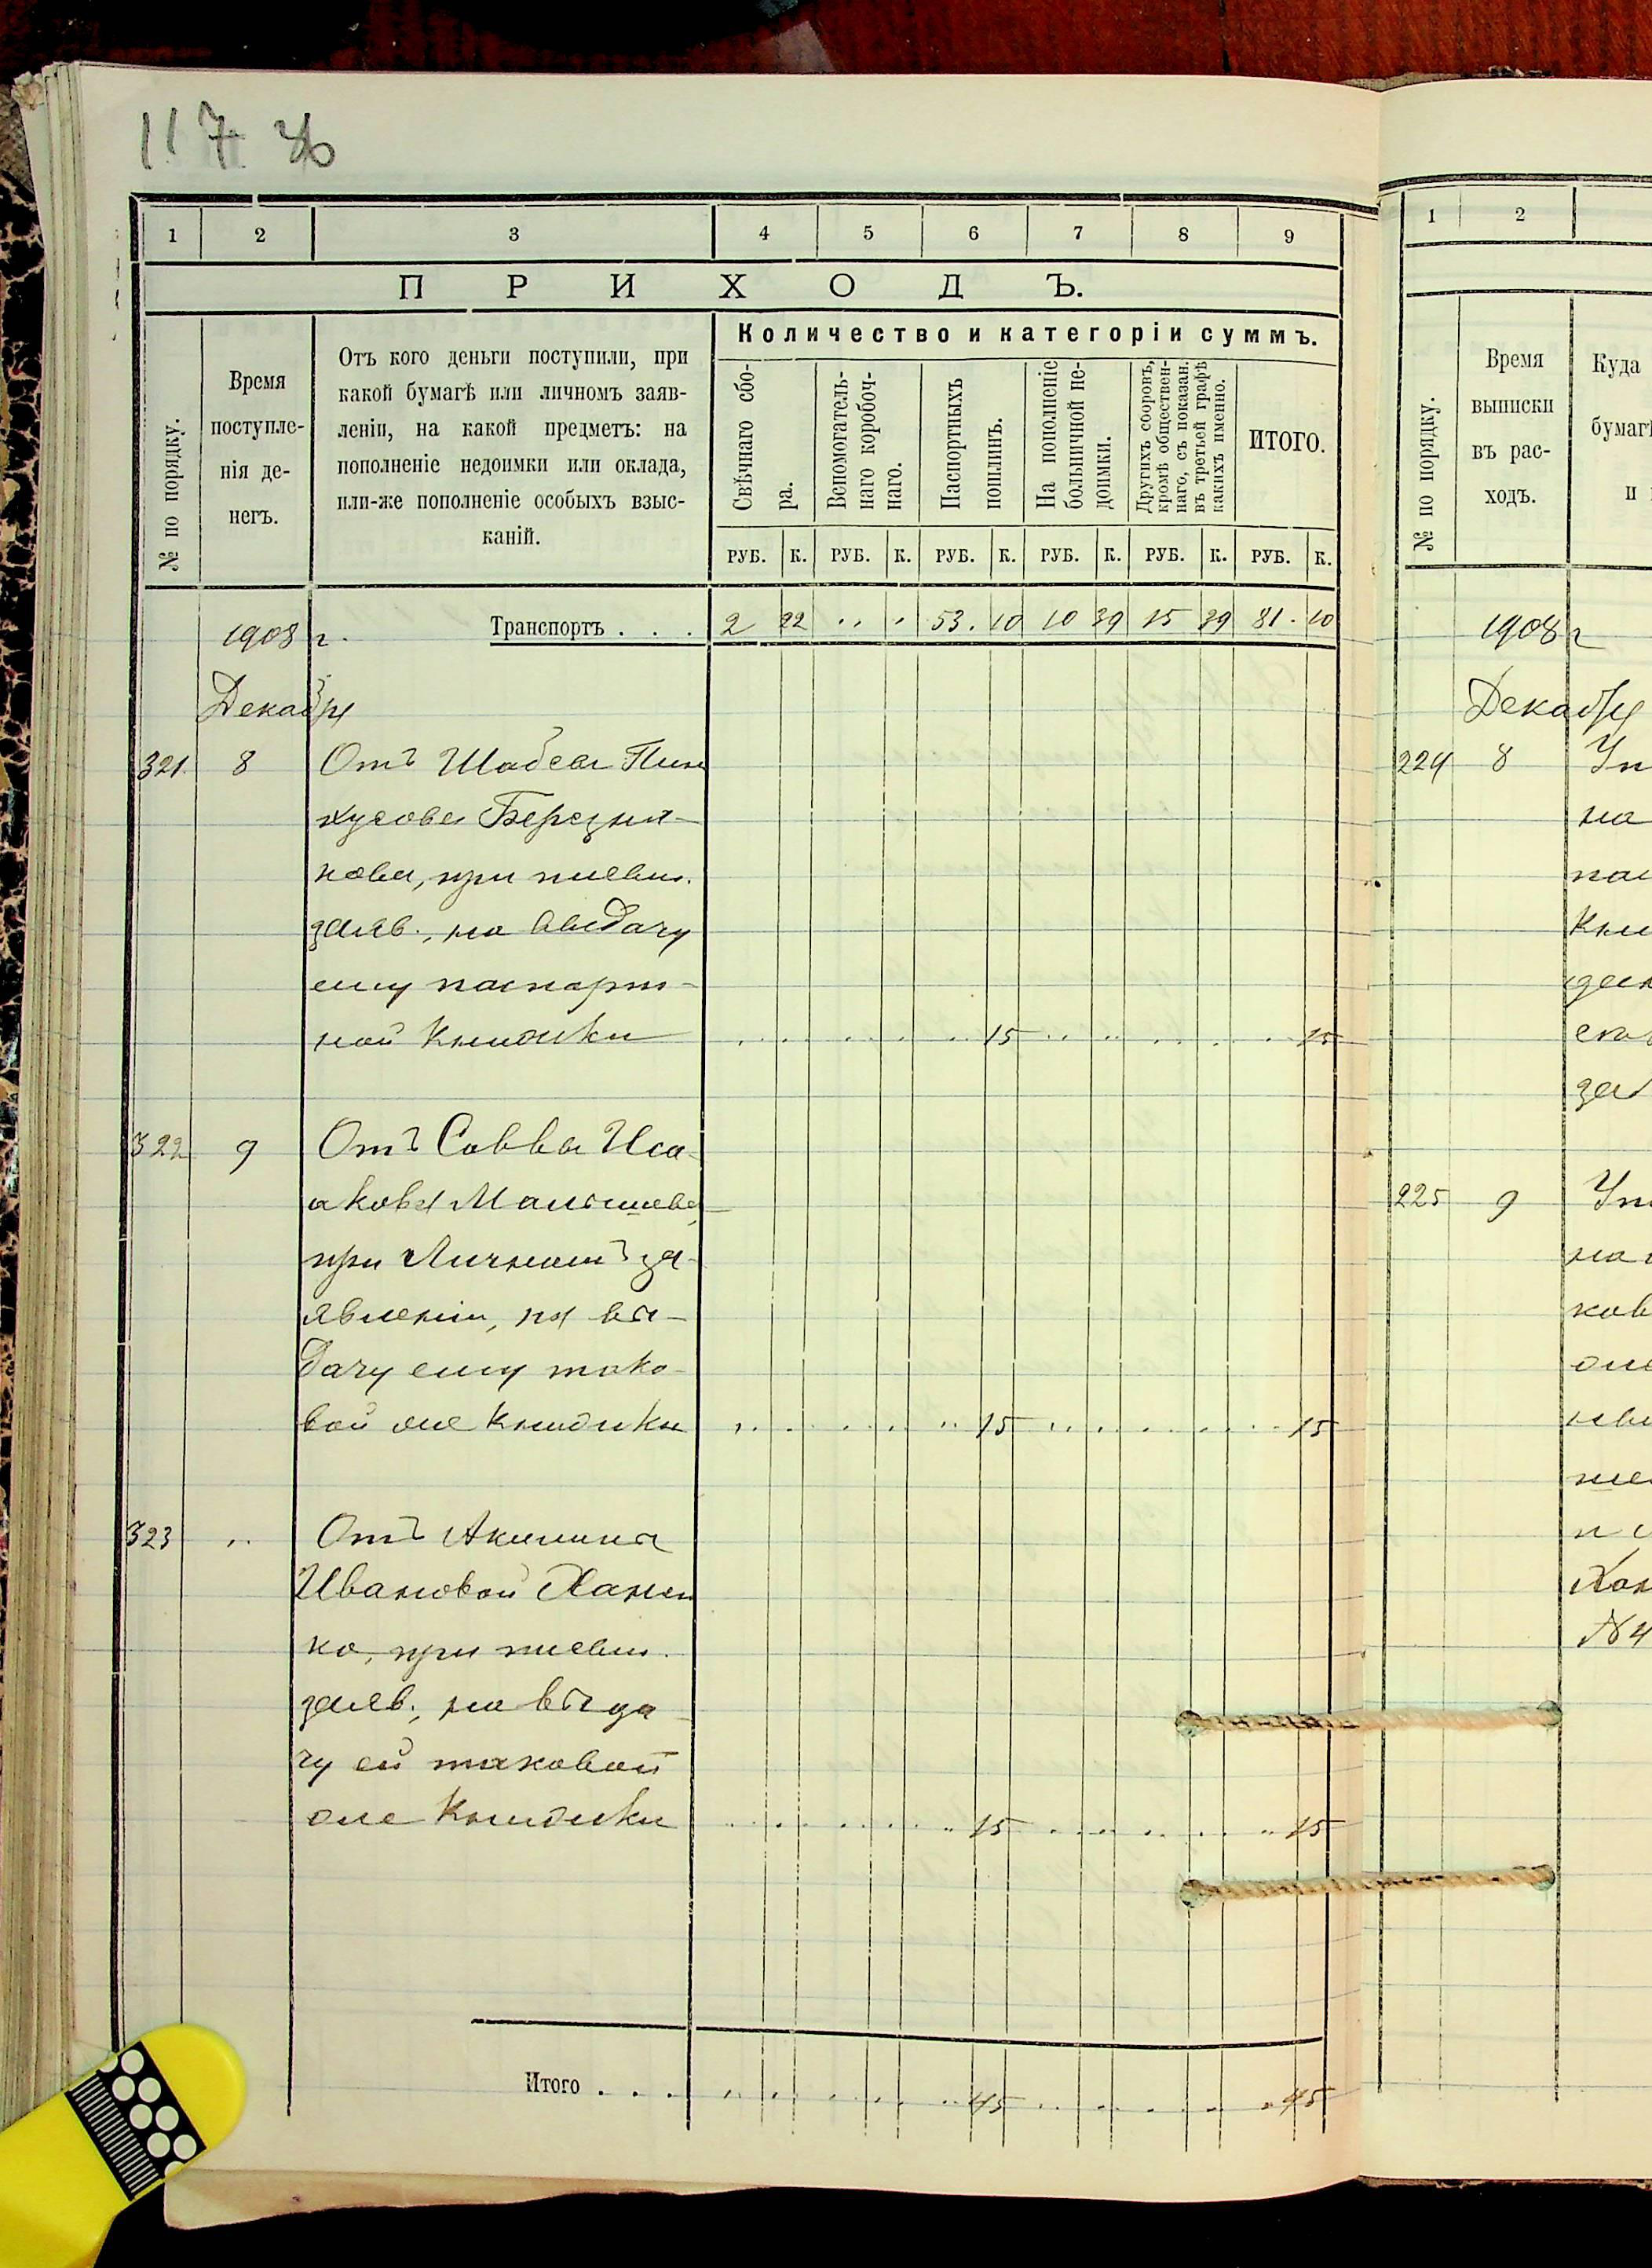 117 36
1 2 3 4 5 6 7 8 9
ПРИХОДЪ.
№ по порядку.
Время
поступле-
нія де-
негъ.
Отъ кого деньги поступили, при
какой бумагѣ или личномъ заяв-
леніи, на какой предметъ: на
пополненіе недоимки или оклада,
или-же пополненіе особыхъ взыс-
каній.
Количество и категоріи суммъ.
Свѣчнаго сбо-
ра.
Вспомогатель-
наго коробоч-
наго.
Паспортныхъ
пошлинъ.
На пополненіе
больничной не-
доимки.
Другихъ сборовъ,
кромѣ обществен-
наго, съ показан.
въ третьей графѣ
какихъ именно.
ИТОГО.
РУБ. К. РУБ. К. РУБ. К. РУБ. К. РУБ. К. РУБ. К.
1908 г. Транспортъ . . . 2 22 53. 10 10 39 15 39 81. 10
Декабря
321. 8 Отъ Шабса Пин
хусова Березня-
кова, при письм.
заяв., на выдачу
ему паспорт-
ной книжки 15 15
322 9 Отъ Саввы Иса-
акова Малышева,
при личномъ за-
явленіи, на вы-
дачу ему тако-
вой же книжки 15 15
323 " Отъ Акилины
Ивановой Ханен
ко, при письм.
заяв., на выда-
чу ей таковой
же книжки 15 15
Итого . . . 45 45
1 2
№ по порядку.
Время
выписки
въ рас-
ходъ.
Куда
бумаг
и
1908 г
Декабря
224 8
на
225 9
№ 4